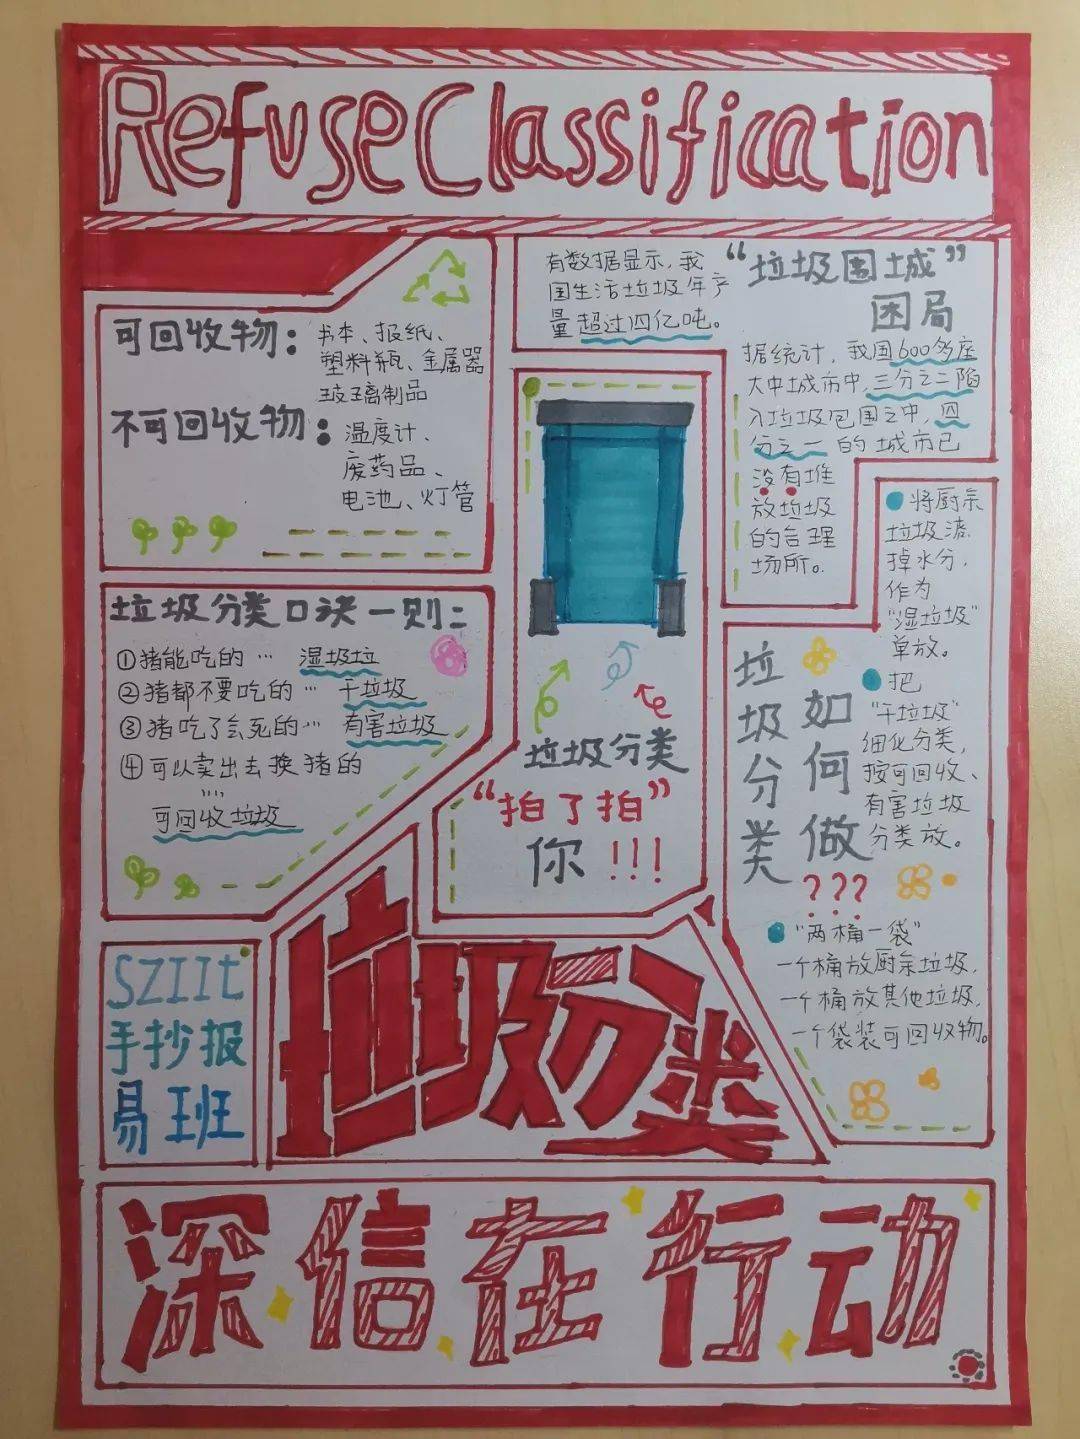 Refuse Classification
可回收物：书本、报纸、
塑料瓶、金属器
玻璃制品
不可回收物：温度计、
废药品、
电池、灯管
有数据显示，我
国生活垃圾年产
量超过四亿吨。
“垃圾围城”
困局
据统计，我国600多座
大中城市中，三分之二陷
入垃圾包围之中，四
分之一的城市已
没有堆
放垃圾
的合理
场所。
垃圾分类口诀一则：
①猪能吃的…湿圾垃
②猪都不要吃的…干垃圾
③猪吃了会死的…有害垃圾
④可以卖出去换猪的
……
可回收垃圾
垃圾分类
“拍了拍”
你!!!
垃圾分类
如何做
???
将厨余
垃圾沥
掉水分，
作为
“湿垃圾”
单放。
把
“干垃圾”
细化分类，
按可回收、
有害垃圾
分类放。
“两桶一袋”
一个桶放厨余垃圾，
一个桶放其他垃圾，
一个袋装可回收物。
SZIIt
手抄报
易班
垃圾分类
深信在行动